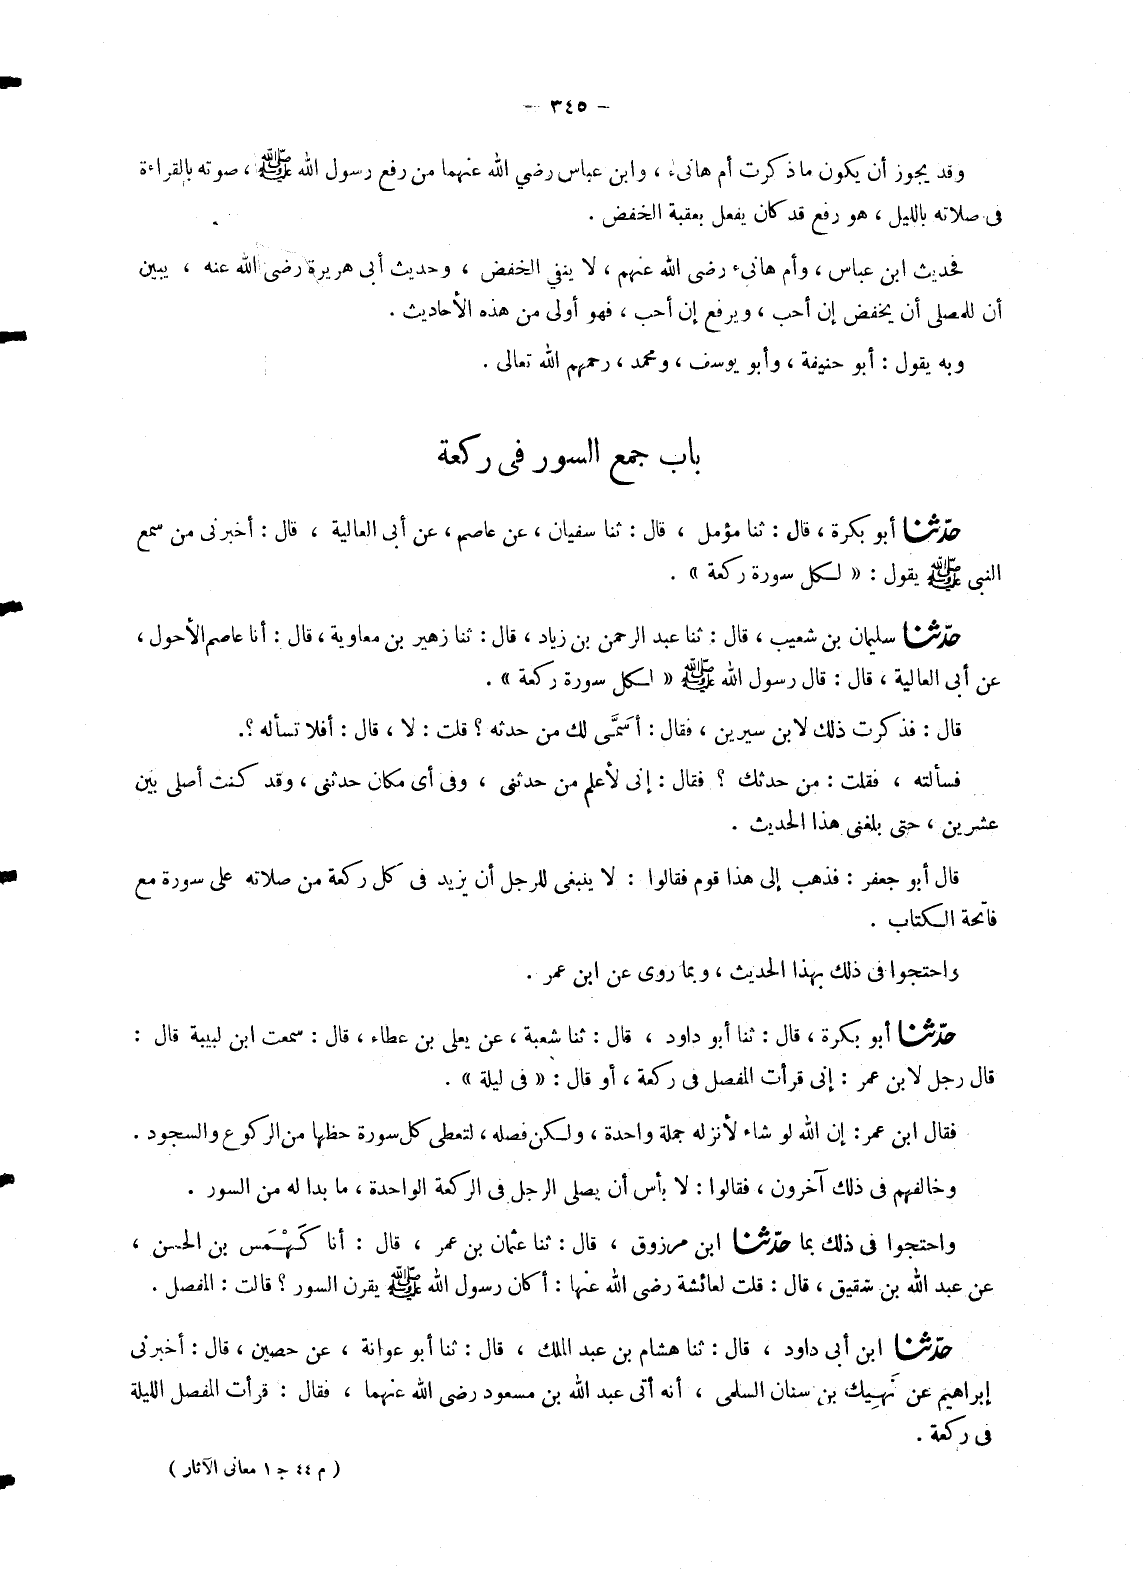 — ٣٤٥ —
وقد يجوز أن يكون ما ذكرت أم هانىء ، وابن عباس رضي الله عنهما من رفع رسول الله ﷺ ، صوته بالقراءة
فى صلاته بالليل ، هو رفع قد كان يفعل بعقبة الخفض .
فحديث ابن عباس ، وأم هانىء رضى الله عنهم ، لا ينفي الخفض ، وحديث أبى هريرة رضى الله عنه ، يبين
أن للمصلى أن يخفض إن أحب ، ويرفع إن أحب ، فهو أولى من هذه الأحاديث .
وبه يقول : أبو حنيفة ، وأبو يوسف ، ومحمد ، رحمهم الله تعالى .
باب جمع السور فى ركعة
حدّثنا أبو بكرة ، قال : ثنا مؤمل ، قال : ثنا سفيان ، عن عاصم ، عن أبى العالية ، قال : أخبرنى من سمع
النبى ﷺ يقول : « لكل سورة ركعة » .
حدّثنا سليمان بن شعيب ، قال : ثنا عبد الرحمن بن زياد ، قال : ثنا زهير بن معاوية ، قال : أنا عاصم الأحول ،
عن أبى العالية ، قال : قال رسول الله ﷺ « لكل سورة ركعة » .
قال : فذكرت ذلك لابن سيرين ، فقال : أسَمَّى لك من حدثه ؟ قلت : لا ، قال : أفلا تسأله ؟.
فسألته ، فقلت : من حدثك ؟ فقال : إنى لأعلم من حدثنى ، وفى أى مكان حدثنى ، وقد كنت أصلى بين
عشرين ، حتى بلغنى هذا الحديث .
قال أبو جعفر : فذهب إلى هذا قوم فقالوا : لا ينبغى للرجل أن يزيد فى كل ركعة من صلاته على سورة مع
فاتحة الكتاب .
واحتجوا فى ذلك بهذا الحديث ، وبما روى عن ابن عمر .
حدّثنا أبو بكرة ، قال : ثنا أبو داود ، قال : ثنا شعبة ، عن يعلى بن عطاء ، قال : سمعت ابن لبيبة قال :
قال رجل لابن عمر : إنى قرأت المفصل فى ركعة ، أو قال : « فى ليلة » .
فقال ابن عمر : إن الله لو شاء لأنزله جملة واحدة ، ولكن فصله ، لتعطى كل سورة حظها من الركوع والسجود .
وخالفهم فى ذلك آخرون ، فقالوا : لا بأس أن يصلى الرجل فى الركعة الواحدة ، ما بدا له من السور .
واحتجوا فى ذلك بما حدّثنا ابن مرزوق ، قال : ثنا عثمان بن عمر ، قال : أنا كَهْمَس بن الحسن ،
عن عبد الله بن شقيق ، قال : قلت لعائشة رضى الله عنها : أكان رسول الله ﷺ يقرن السور ؟ قالت : المفصل .
حدّثنا ابن أبى داود ، قال : ثنا هشام بن عبد الملك ، قال : ثنا أبو عوانة ، عن حصين ، قال : أخبرنى
إبراهيم عن نَهِيك بن سنان السلمى ، أنه أتى عبد الله بن مسعود رضى الله عنهما ، فقال : قرأت المفصل الليلة
فى ركعة .
( م ٤٤ ج ١ معانى الآثار )